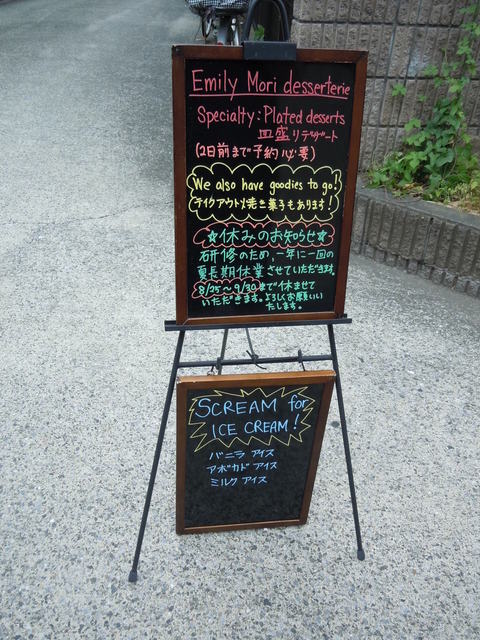 Emily Mori desserterie
Specialty: Plated desserts
皿盛りデザート
(2日前まで予約必要)
We also have goodies to go!
テイクアウト焼き菓子もあります!
☆休みのお知らせ☆
研修のため、一年に一回の
夏長期休業させていただきます。
8/25〜9/30まで休ませて
いただきます。よろしくお願いい
たします。
SCREAM for
ICE CREAM!
バニラ アイス
アボカド アイス
ミルク アイス